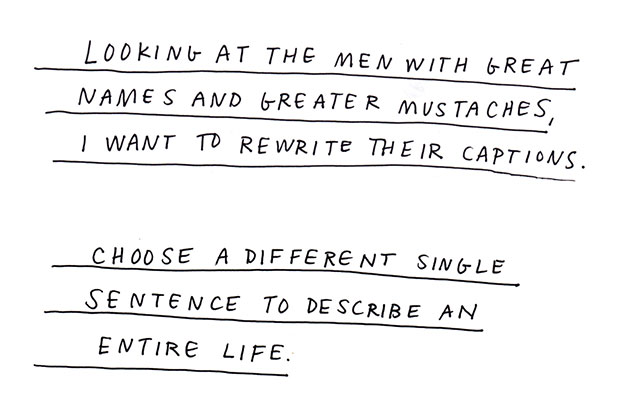 LOOKING AT THE MEN WITH GREAT
NAMES AND GREATER MUSTACHES,
I WANT TO REWRITE THEIR CAPTIONS.
CHOOSE A DIFFERENT SINGLE
SENTENCE TO DESCRIBE AN
ENTIRE LIFE.